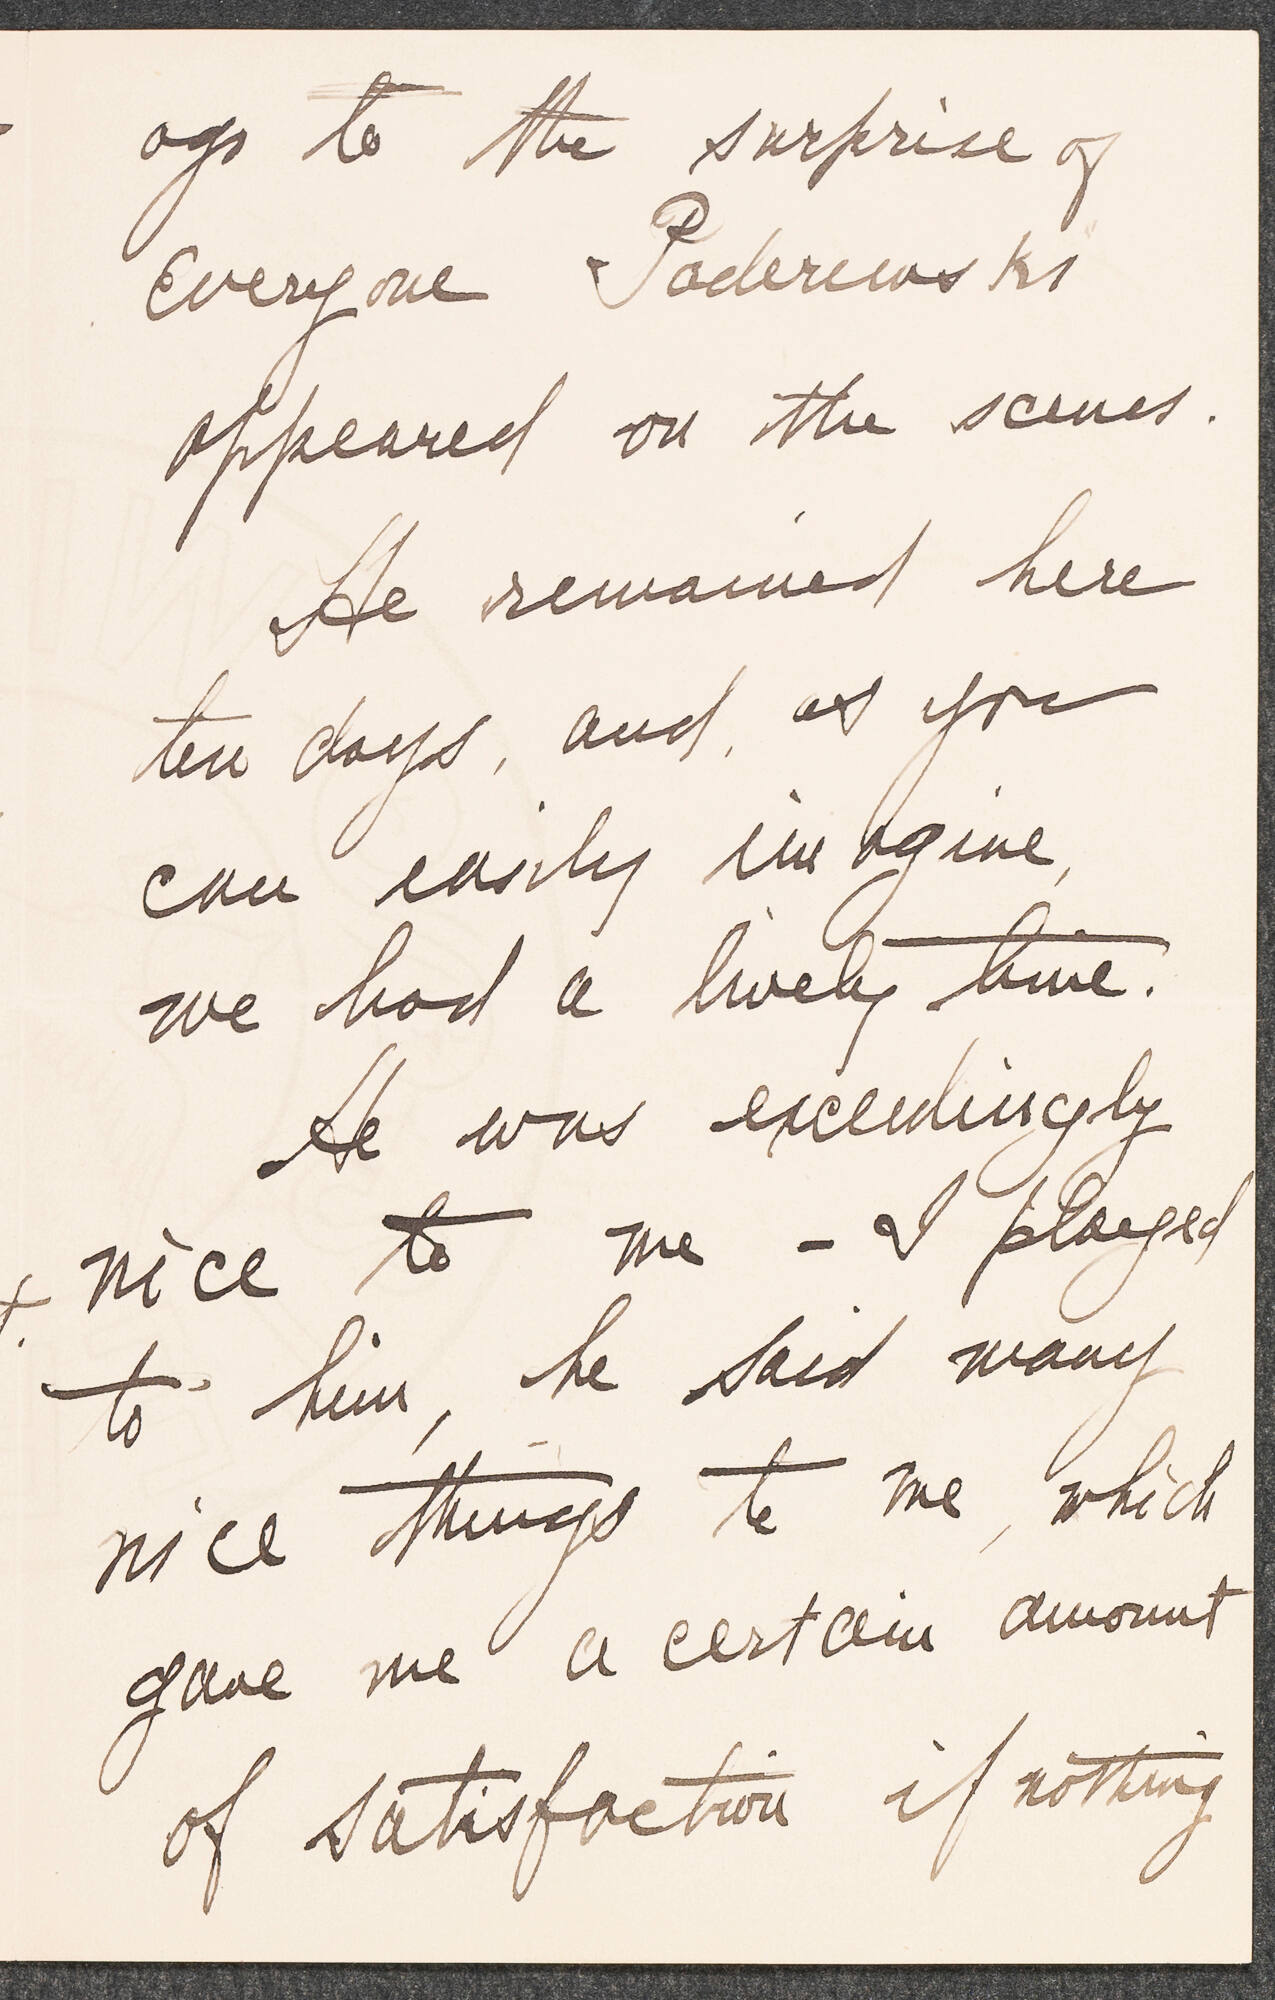 ago to the surprise of
everyone Paderewski
appeared on the scenes.
He remained here
ten days, and, as you
can easily imagine,
we had a lively time.
He was exceedingly
nice to me - I played
to him, he said many
nice things to me, which
gave me a certain amount
of satisfaction if nothing